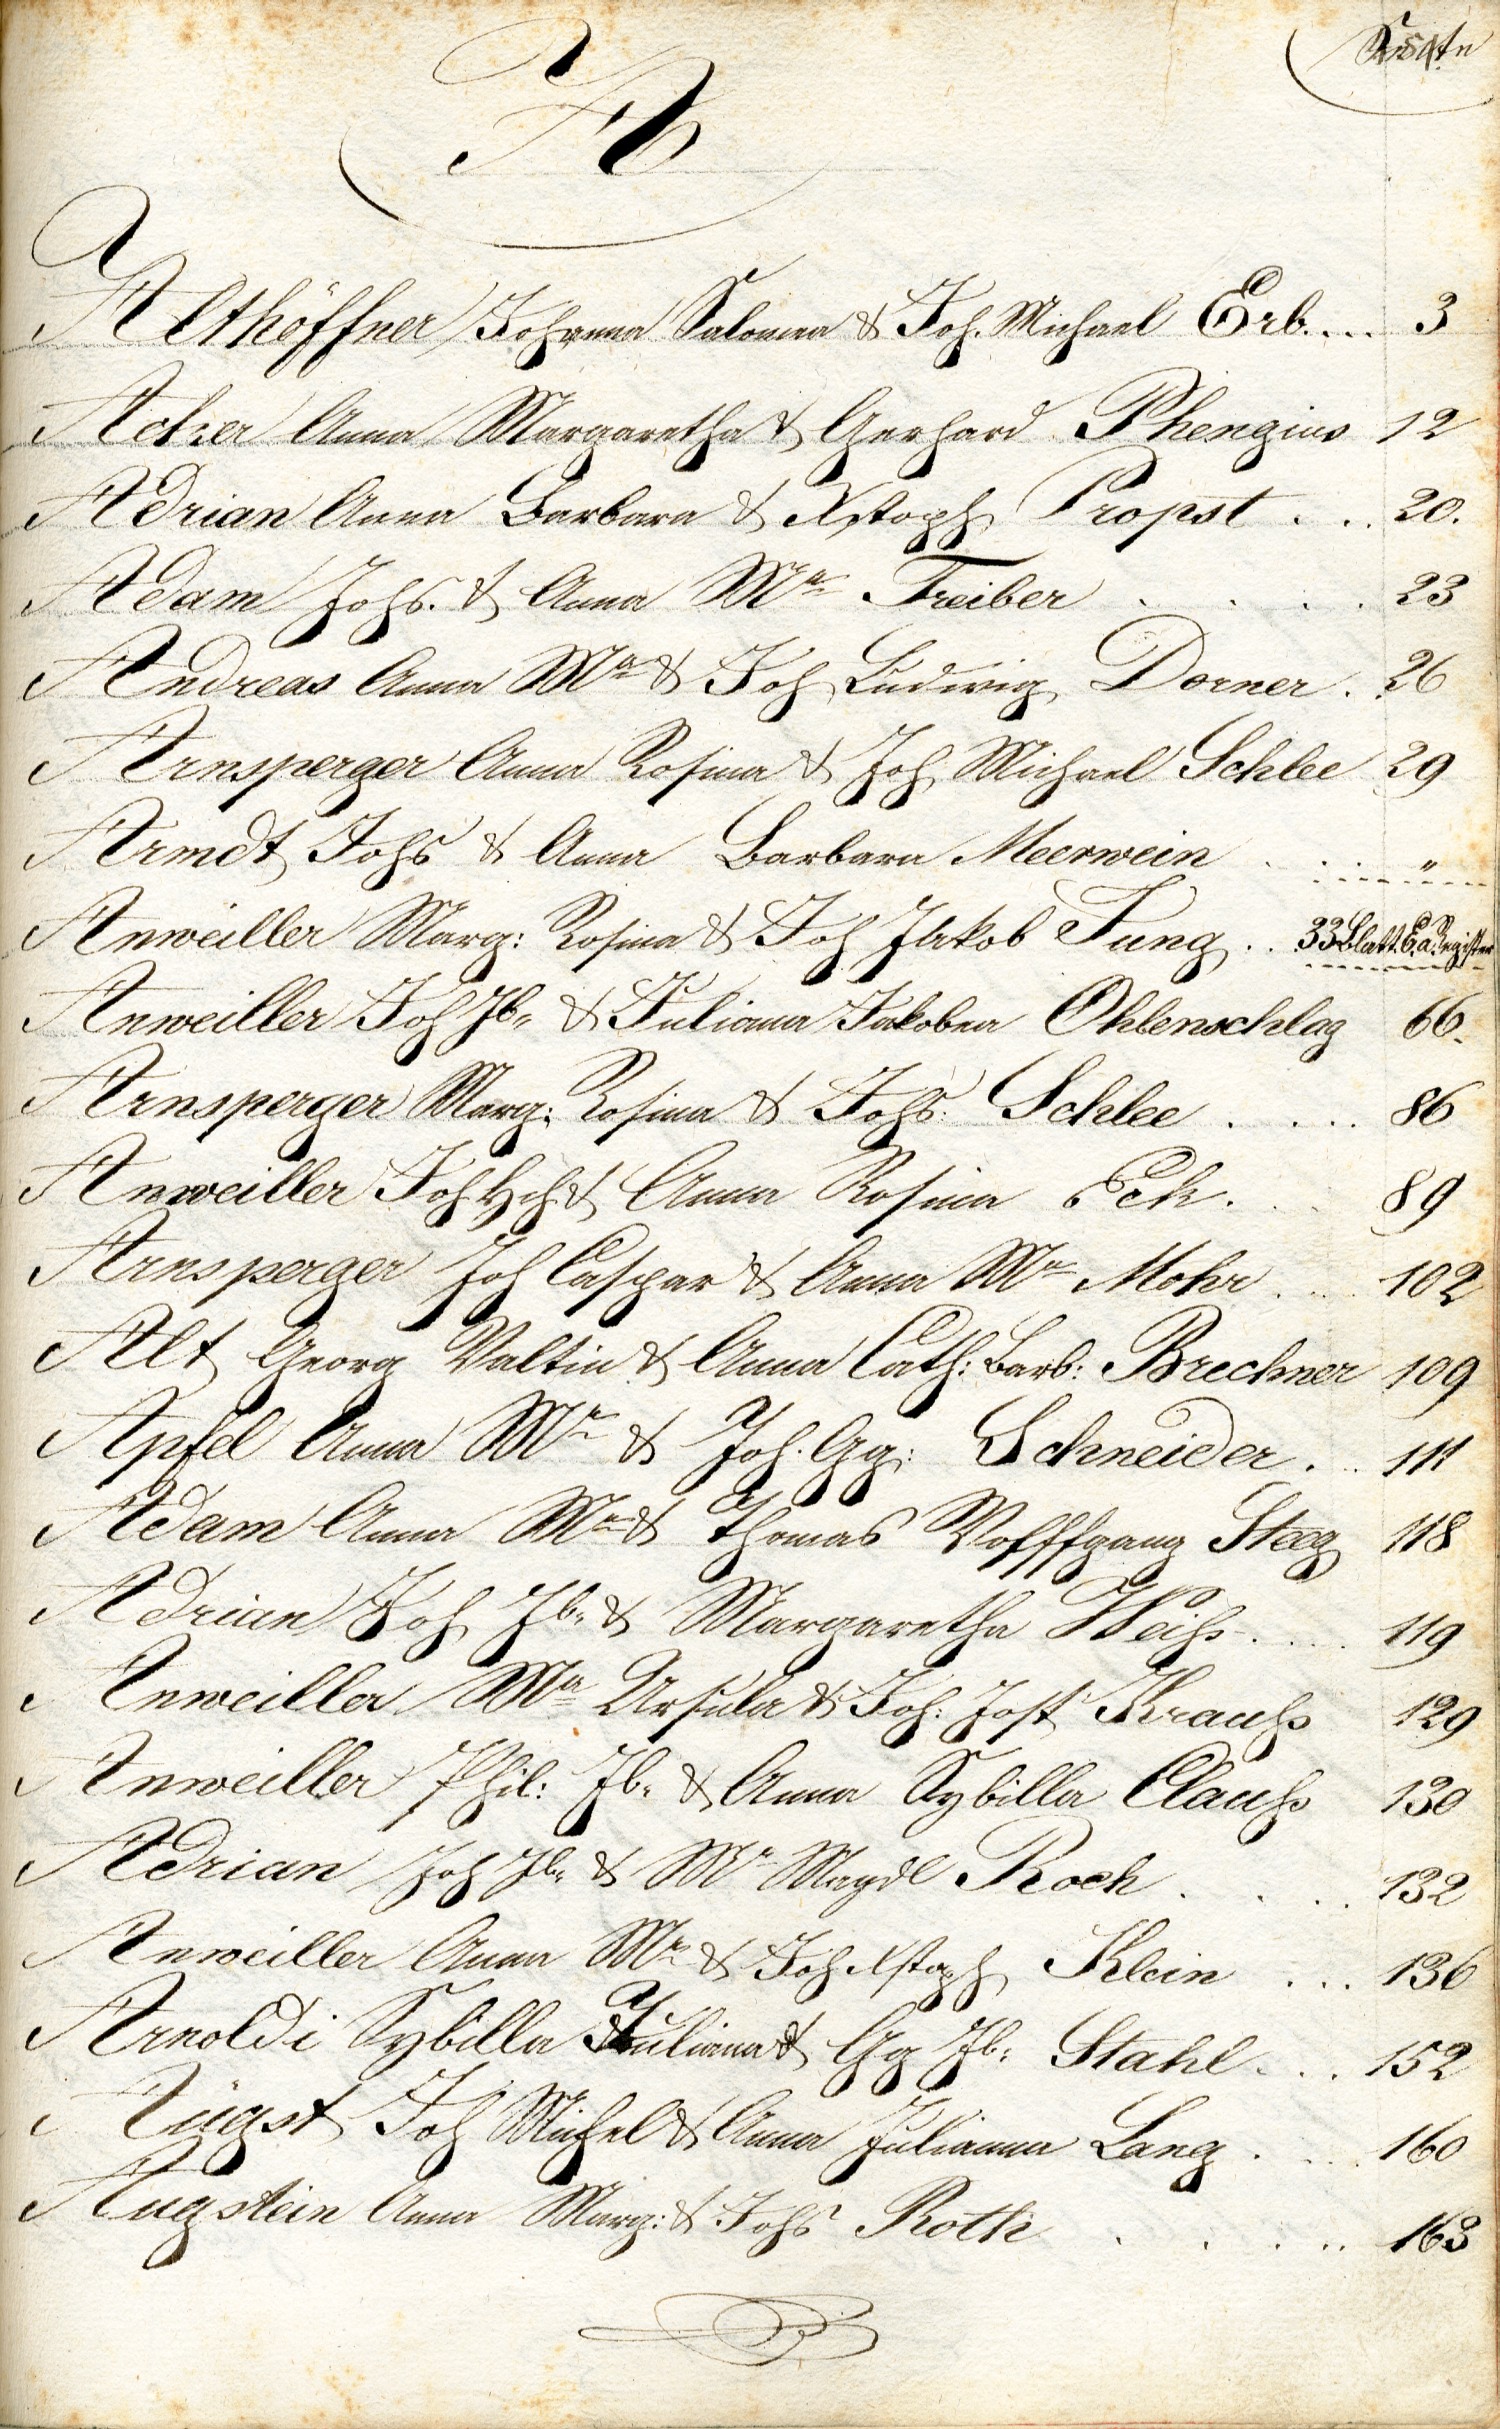 A
Althöffner Johanna Salomea & Joh. Michael Erb.... 3
Acker Anna Margaretha & Gerhard Phengius 12
Adrian Anna Barbara & Xstoph Propst ... 20.
Adam Johs. & Anna Mª Treiber .... 23
Andreas Anna Mª & Joh Ludwig Dorner. 26
Arnsperger Anna Rosina & Joh Michael Schlee 29
Arndt Johs & Anna Barbara Meerwein ... "
Anweiller Marg: Rosina & Joh Jakob Jung .. 33
Anweiller Joh Jb. & Juliana Jakobea Ohlenschlag 66.
Arnsperger Marg: Rosina & Johs: Schlee .... 86
Anweiller Joh Hch & Anna Rosina Eck. ... 89
Arnsperger Joh Caspar & Anna Mª Mohr ... 102
Alt Georg Valtin & Anna Cath: Barb: Brechner 109
Apfel Anna Mª & Joh. Gg: Schneider ... 111
Adam Anna Mª & Thomas Wolffgang Steeg 118
Adrian Joh Jb. & Margaretha Weihs .... 119
Anweiller Mª Ursula & Joh: Jost Krauhs 129
Anweiller Phil: Jb. & Anna Sybilla Clauhs 130
Adrian Joh Jb. & Mª Magdl Koch .... 132
Anweiller Anna Mª & Joh Xstoph Klein ... 136
Arnoldi Sybilla Juliana & Gg Jb. Stahl ... 152
Augst Joh Michel & Anna Julianna Lang ... 160
Augstein Anna Marg: & Johs Roth ..... 163